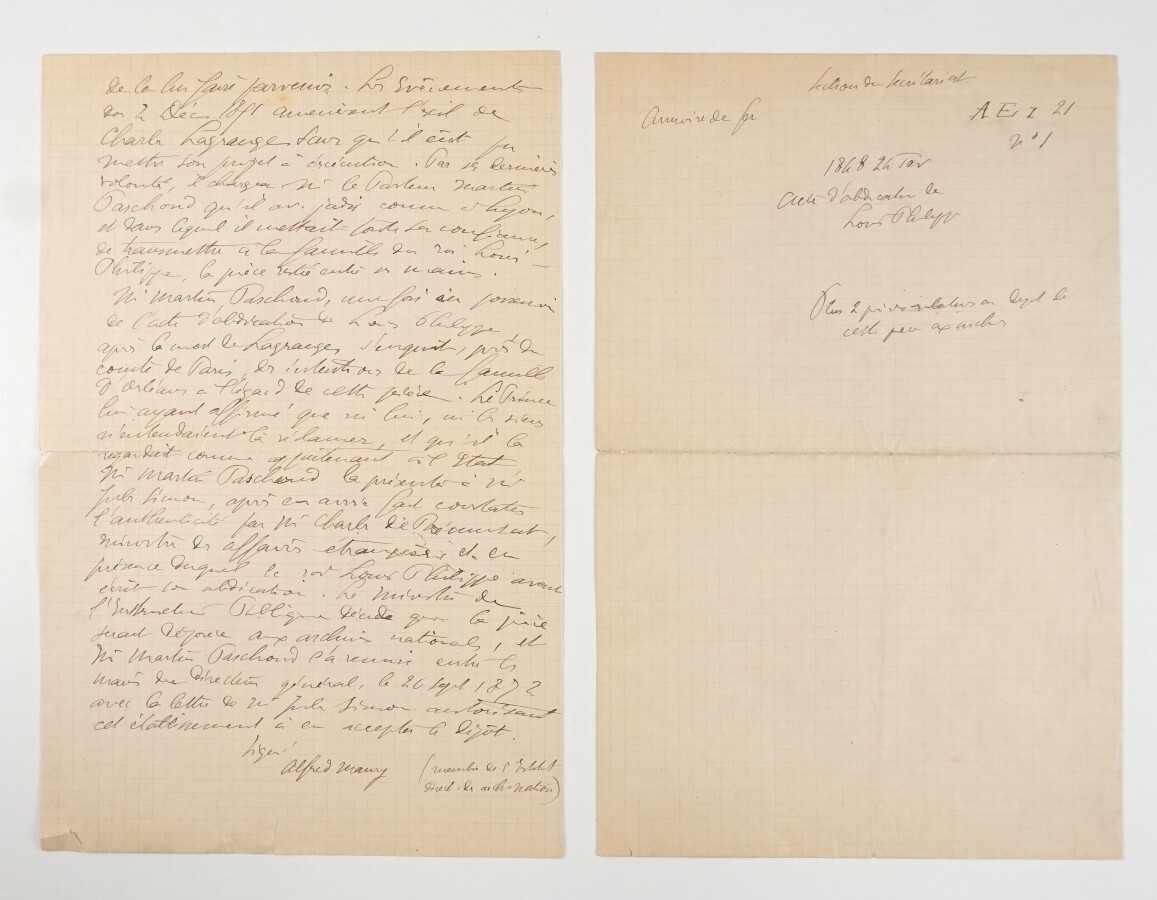 de la lui faire parvenir. Les Evènements
du 2 Déc. 1851 amenèrent l'exil de
Charles Lagrange sans qu'il eût pu
mettre son projet à exécution. Par ses dernières
volontés, il chargea Mr le Pasteur Martin
Paschoud qu'il av. jadis connu à Lyon,
et dans lequel il mettait toute sa confiance,
de transmettre à la famille du roi Louis-
Philippe, la pièce restée entre ses mains.
Mr Martin Paschoud, une fois en possession
de l'acte d'abdication de Louis Philippe,
après la mort de Lagrange, s'enquit, près du
comte de Paris, des intentions de la famille
d'Orléans à l'égard de cette pièce. Le Prince
lui ayant affirmé que ni lui, ni les siens
n'entendaient la réclamer, et qu'il la
regardait comme appartenant à l'Etat
Mr Martin Paschoud la présenta à Mr
Jules Simon, après en avoir fait constater
l'authenticité par Mr Charles de Rémusat,
ministre des affaires étrangères et en
présence duquel le roi Louis Philippe avait
écrit son abdication. Le Ministre de
l'Instruction Publique décida que la pièce
serait déposée aux archives nationales, et
Mr Martin Paschoud l'a remise entre les
mains du Directeur général, le 26 Sept 1872
avec la lettre de Mr Jules Simon autorisant
cet établissement à en accepter le dépôt.
Signé
Alfred Maury (membre de l'Institut
direct. des arch. Nation)
Section du Secrétariat
Armoire de fer
AE I 21
n° 1
1848 24 Fev
Acte d'abdication de
Louis Philippe
Plus 2 pièces relatives au dépôt de
cette pièce aux archives